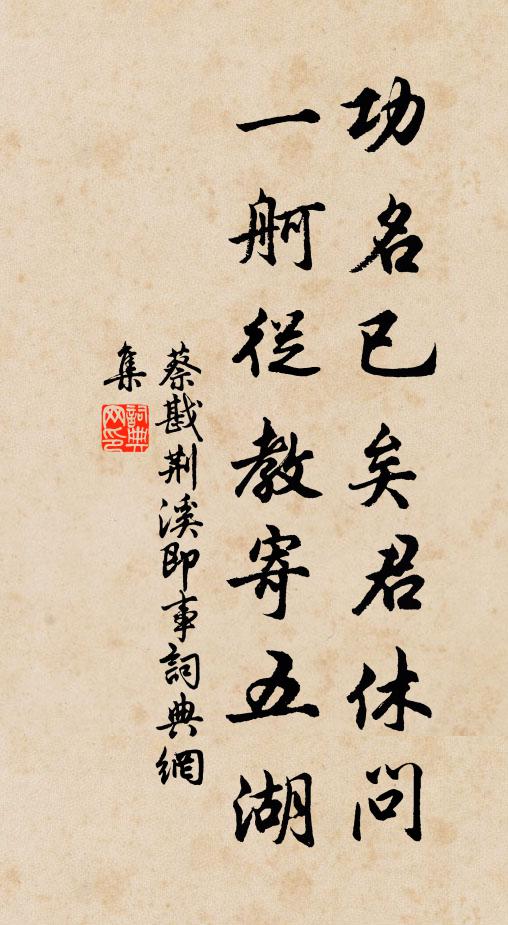 功名已矣君休問
一舸從教寄五湖
蔡戡荆溪即事詞典網
集
詞典
网印